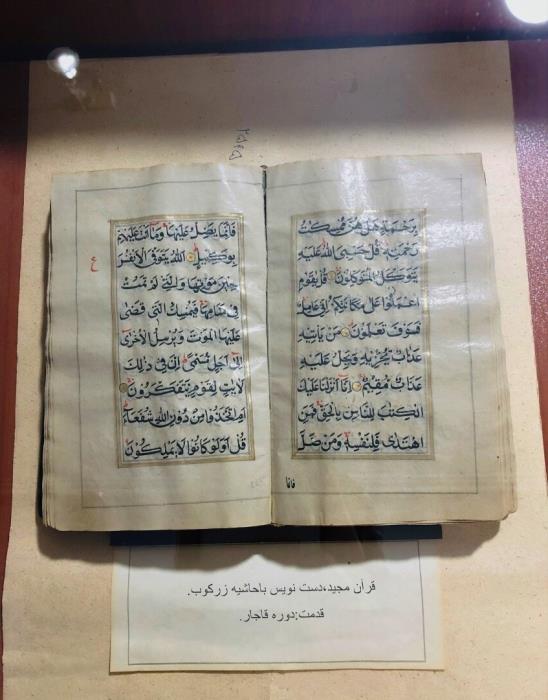 بِرَحْمَةٍ هَلْ هُنَّ مُمْسِكٰتُ
رَحْمَتِهِ قُلْ حَسْبِيَ اللّٰهُ عَلَيْهِ
يَتَوَكَّلُ الْمُتَوَكِّلُونَ قُلْ يٰقَوْمِ
اعْمَلُوا عَلٰى مَكَانَتِكُمْ اِنِّي عَامِلٌ
فَسَوْفَ تَعْلَمُونَ مَنْ يَأْتِيهِ
عَذَابٌ يُخْزِيهِ وَيَحِلُّ عَلَيْهِ
عَذَابٌ مُقِيمٌ اِنَّا اَنْزَلْنَا عَلَيْكَ
الْكِتٰبَ لِلنَّاسِ بِالْحَقِّ فَمَنِ
اهْتَدٰى فَلِنَفْسِهِ وَمَنْ ضَلَّ
فَاِنَّمَا يَضِلُّ عَلَيْهَا وَمَا اَنْتَ عَلَيْهِمْ
بِوَكِيلٍ اَللّٰهُ يَتَوَفَّى الْاَنْفُسَ
حِينَ مَوْتِهَا وَالَّتِي لَمْ تَمُتْ
فِي مَنَامِهَا فَيُمْسِكُ الَّتِي قَضٰى
عَلَيْهَا الْمَوْتَ وَيُرْسِلُ الْاُخْرٰى
اِلٰى اَجَلٍ مُسَمًّى اِنَّ فِي ذٰلِكَ
لَاٰيٰتٍ لِقَوْمٍ يَتَفَكَّرُونَ
اَمِ اتَّخَذُوا مِنْ دُونِ اللّٰهِ شُفَعَاءَ
قُلْ اَوَلَوْ كَانُوا لَا يَمْلِكُونَ
ع
قرآن مجید،دست نویس باحاشیه زرکوب.
قدمت:دوره قاجار.